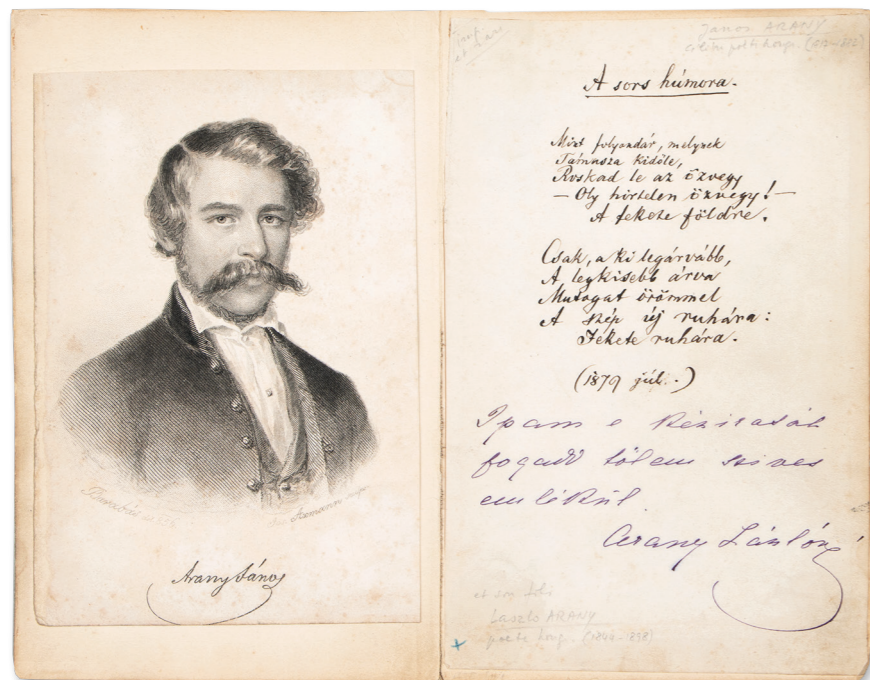 Arany János
János ARANY
A sors húmora.
Mint folyondár, melynek
Támasza kidőle,
Roskad le az özvegy
— Oly hirtelen özvegy! —
A fekete földre.
Csak, a ki legárvább,
A legkisebb árva
Mutogat örömmel
A szép új ruhára:
Fekete ruhára.
(1879 júl. .)
Ipam e kéziratát
fogadd tőlem szives
emlékül.
Arany Lászlóné
et son
Laszlo ARANY
poete hong.